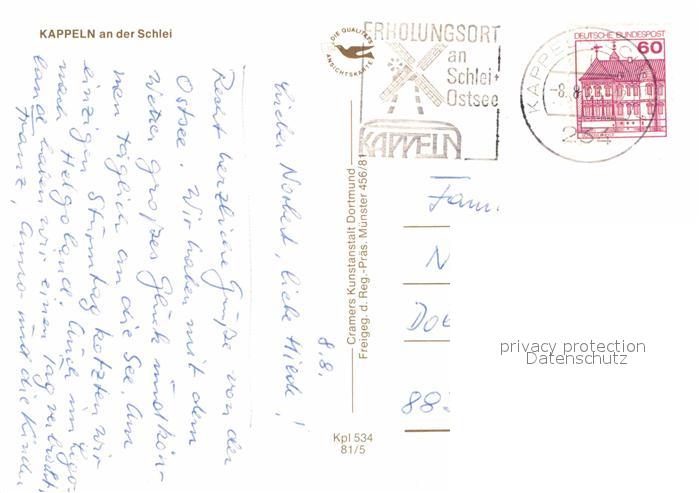 KAPPELN an der Schlei
DIE QUALITÄTS
ANSICHTSKARTE
ERHOLUNGSORT
an
Schlei +
Ostsee
KAPPELN
DEUTSCHE BUNDESPOST
60
KAPPE
-8.8
234
8.8.
Lieber Norbert, liebe Heide!
Recht herzliche Grüße von der
Ostsee. Wir haben mit dem
Wetter großes Glück und kön-
nen täglich an die See. Am
einzigen Sturmtag kotzten wir
nach Helgoland. Auch im Lego-
land haben wir einen Tag verbracht.
Franz, und die Kinder
Cramers Kunstanstalt Dortmund
Freigeg. d. Reg.-Präs. Münster 456/81
Kpl 534
81/5
Fam.
N
Do
88
privacy protection
Datenschutz